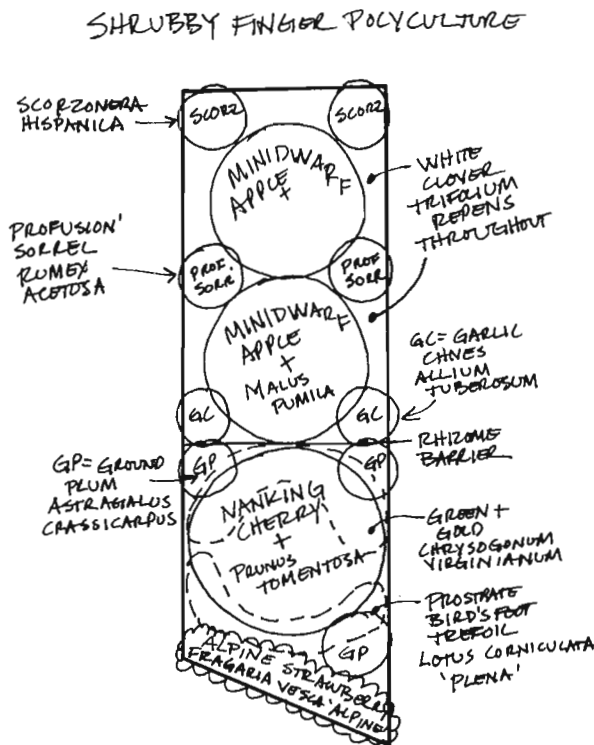 SHRUBBY FINGER POLYCULTURE
SCORZONERA
HISPANICA
SCORZ
SCORZ
MINIDWARF
APPLE
+
WHITE
CLOVER
TRIFOLIUM
REPENS
THROUGHOUT
PROFUSION'
SORREL
RUMEX
ACETOSA
PROF
SORR.
PROF
SORR
MINIDWARF
APPLE
+
MALUS
PUMILA
GC = GARLIC
CHIVES
ALLIUM
TUBEROSUM
GC
GC
RHIZOME
BARRIER
GP = GROUND
PLUM
ASTRAGALUS
CRASSICARPUS
GP
GP
NANKING
CHERRY
+
PRUNUS
TOMENTOSA
GREEN +
GOLD
CHRYSOGONUM
VIRGINIANUM
PROSTRATE
BIRD'S FOOT
TREFOIL
LOTUS CORNICULATA
'PLENA'
GP
ALPINE STRAWBERRY
FRAGARIA VESCA 'ALPINE'